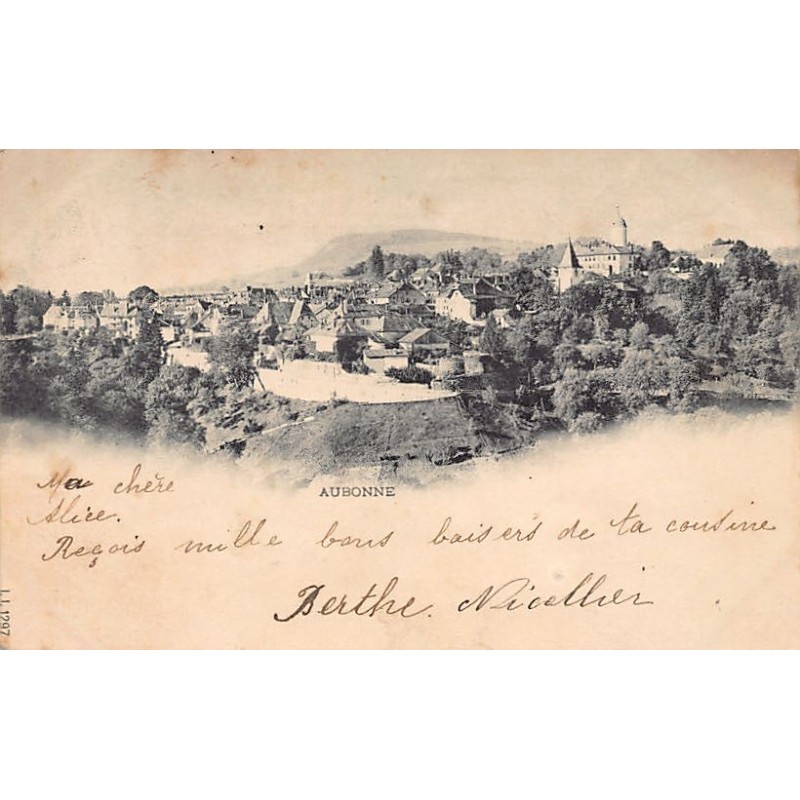 AUBONNE
Ma chère
Alice.
Reçois mille bons baisers de ta cousine
Berthe. Nicollier
J.J. 1297